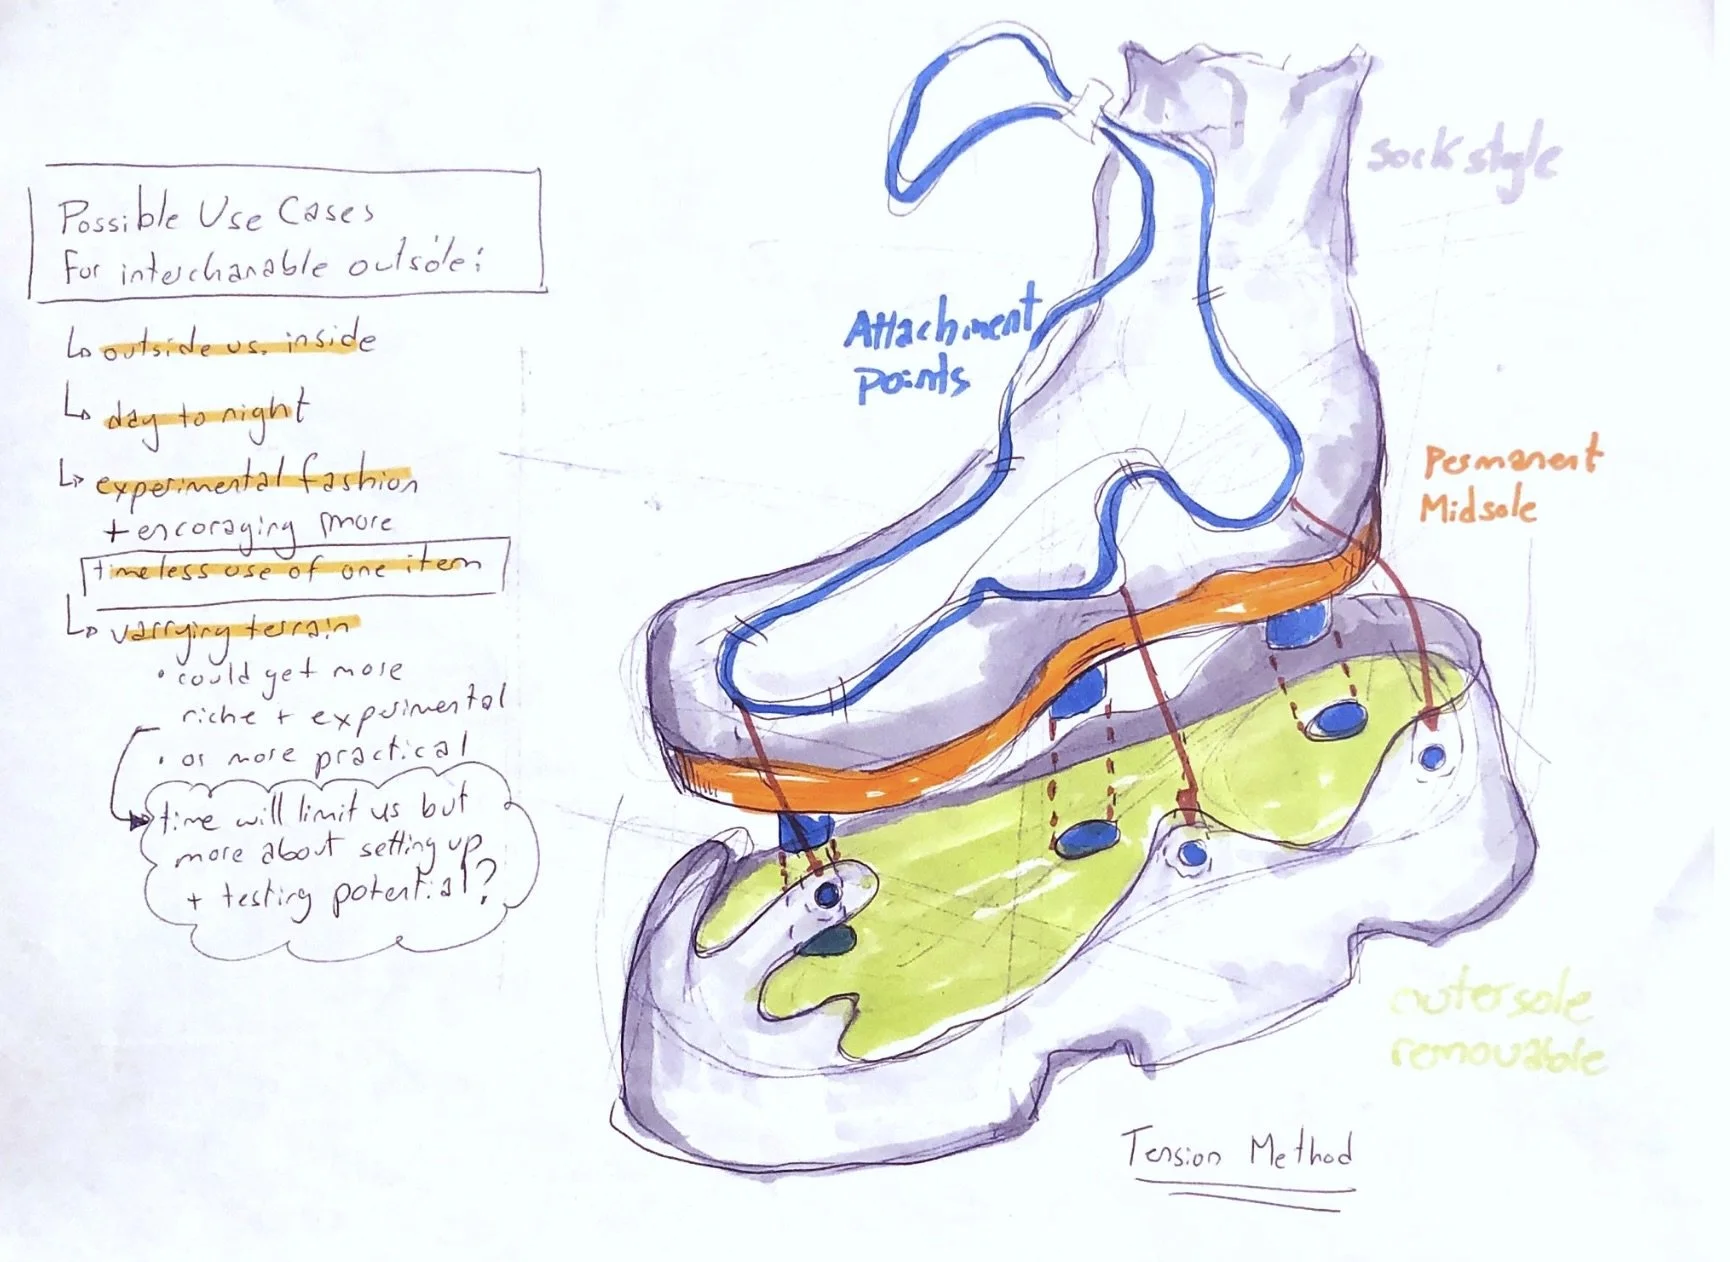 Possible Use Cases
For interchanable outsole:
outside vs. inside
day to night
experimental fashion
+ encoraging more
timeless use of one item
varrying terrain
• could get more
riche + experimental
• or more practical
time will limit us but
more about setting up
+ testing potential?
sock style
Attachment
points
Permanent
Midsole
outersole
removable
Tension Method